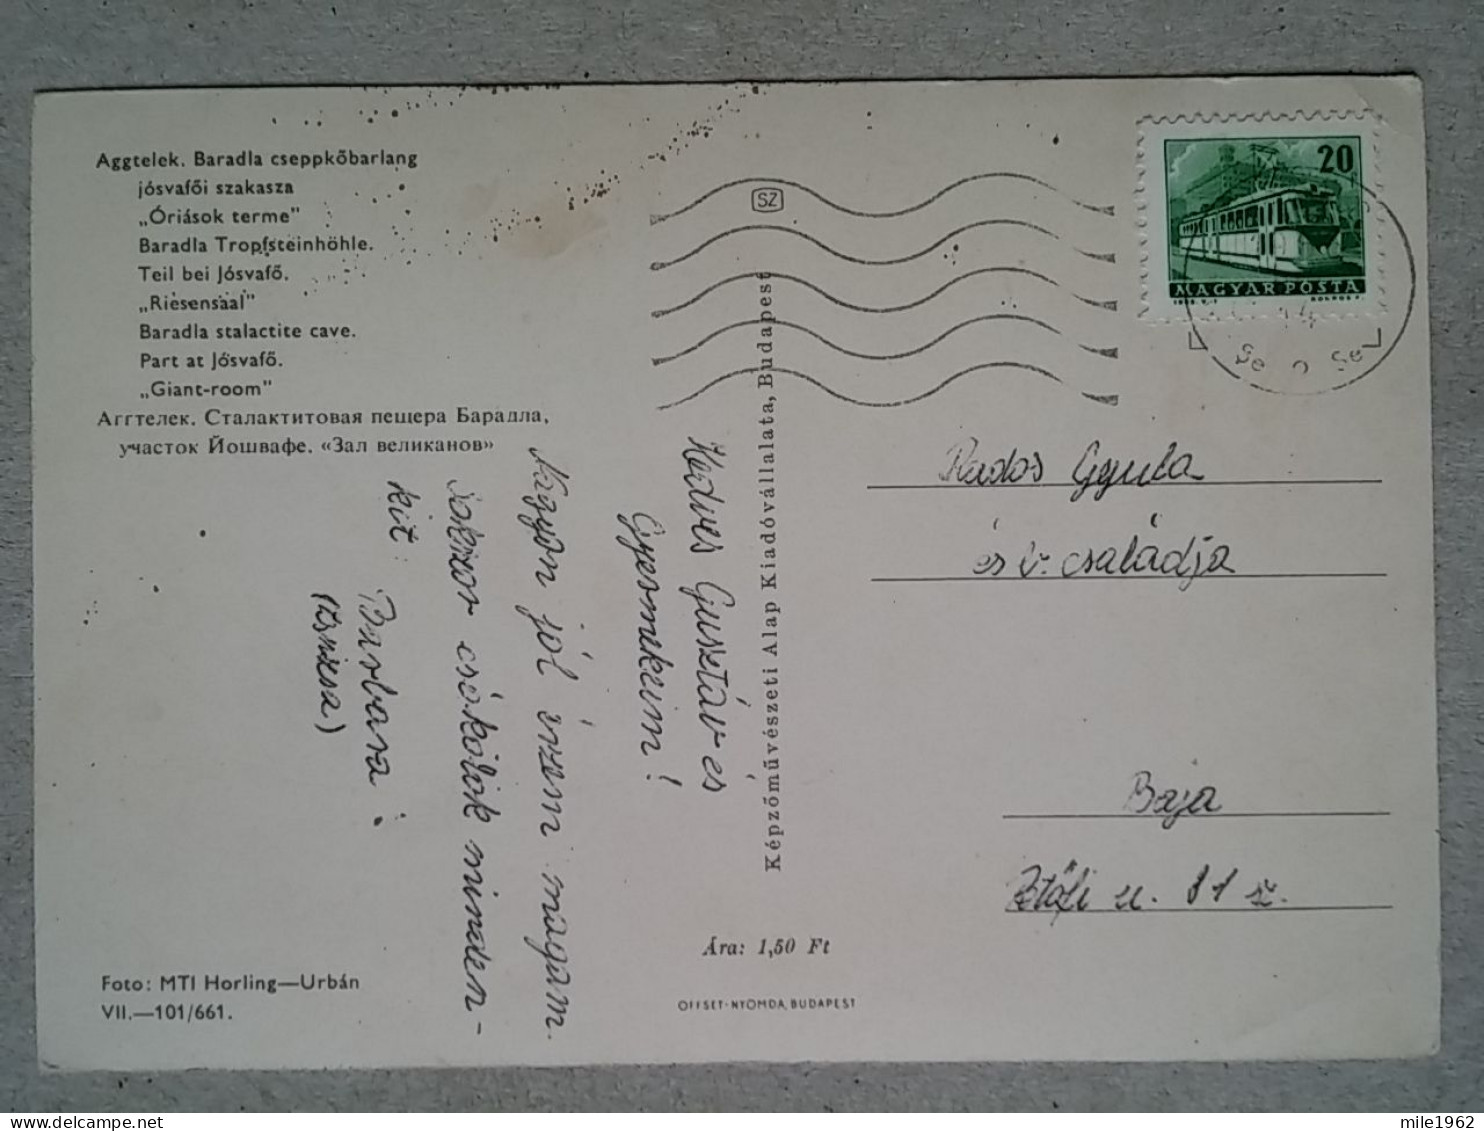 Aggtelek. Baradla cseppkőbarlang
jósvafői szakasza
„Óriások terme"
Baradla Tropfsteinhöhle.
Teil bei Jósvafő.
„Riesensaal"
Baradla stalactite cave.
Part at Jósvafő.
„Giant-room"
Аггтелек. Сталактитовая пещера Барадла,
участок Йошвафе. «Зал великанов»
Kedves Gusztáv és
Gyermekeim!
Nagyon jól érzem magam.
Sokszor csókolok minden-
kit:
Barbara
Foto: MTI Horling—Urbán
VII.—101/661.
SZ
Képzőművészeti Alap Kiadóvállalata, Budapest
Ára: 1,50 Ft
OFFSET-NYOMDA, BUDAPEST
20
MAGYAR POSTA
Rados Gyula
és családja
Baja
u. 81 sz.
mile1962